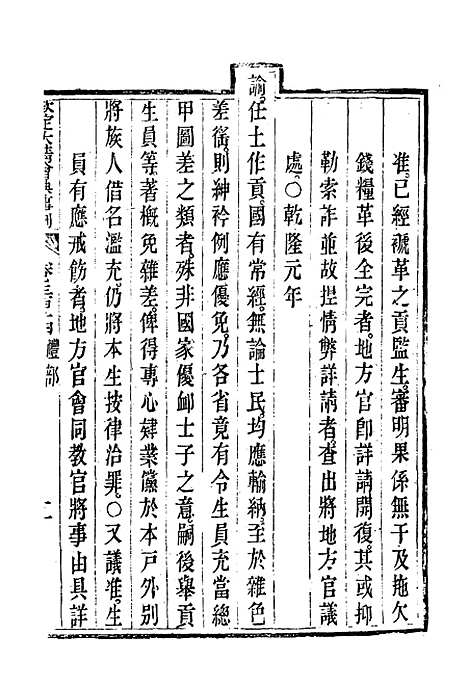 准。已經褫革之貢監生。審明果係無干及拖欠
錢糧革後全完者。地方官卽詳請開復。其或抑
勒索詐並故捏情弊詳請者。查出將地方官議
處。○乾隆元年
諭。任土作貢。國有常經。無論士民。均應輸納。至於雜色
差徭。則紳衿例應優免。乃各省竟有令生員充當總
甲圖差之類者。殊非國家優卹士子之意。嗣後舉貢
生員等著概免雜差。俾得專心肄業。儻於本戶外別
將族人借名濫充。仍將本生按律治罪。○又議准。生
員有應戒飭者。地方官會同教官將事由具詳
欽定大清會典事例 禮部 二